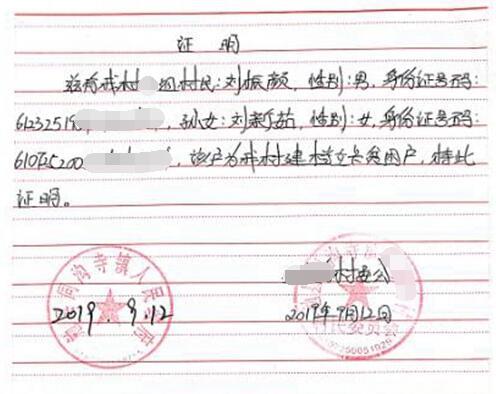 证 明
兹有我村 组村民:刘振颜, 性别:男, 身份证号码:
6123251 , 孙女:刘新茹, 性别:女, 身份证号码:
610725200 , 该户为我村建档立卡贫困户, 特此
证明。
沟寺镇人民
2019. 9.12
村委会
2019年9月12日
村民委员会